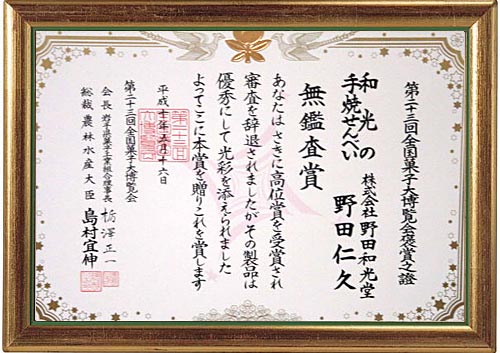 第二十三回全国菓子大博覧会褒賞之證
和光の
手焼せんべい
株式会社野田和光堂
野田仁久
無鑑査賞
あなたはさきに高位賞を受賞され
審査を辞退されましたがその製品は
優秀にして光彩を添えられました
よってここに本賞を贈りこれを賞します
平成十年五月十六日
第二十三回全国菓子大博覧会
会長 岩手県菓子工業組合理事長 栃澤正一
総裁 農林水産大臣 島村宜伸